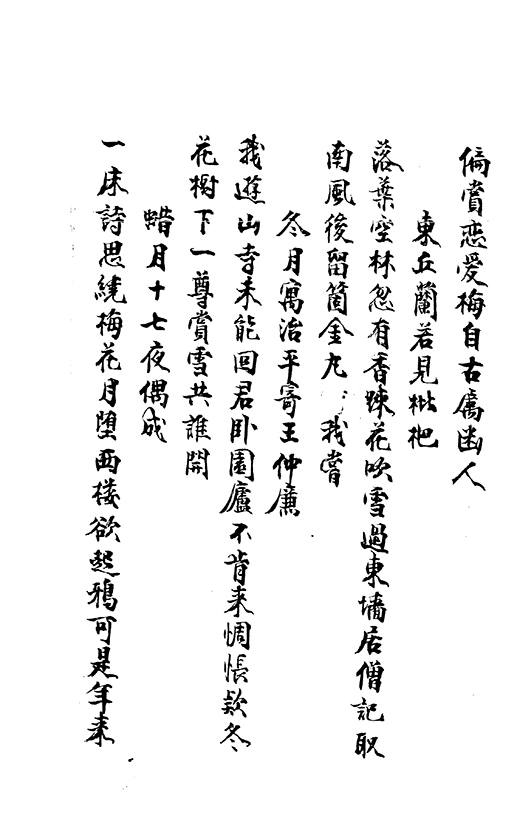 偏賞恋愛梅自古屬幽人
東丘蘭若見枇杷
落葉空林忽有香踈花吹雪過東墻居僧記取
南風後留箇金丸：我嘗
冬月寓治平寄王仲廉
我遊山寺未能回君卧園廬不肯来惆悵欵冬
花樹下一尊賞雪共誰開
蜡月十七夜偶成
一床詩思繞梅花月堕西楼欲起鴉可是年来